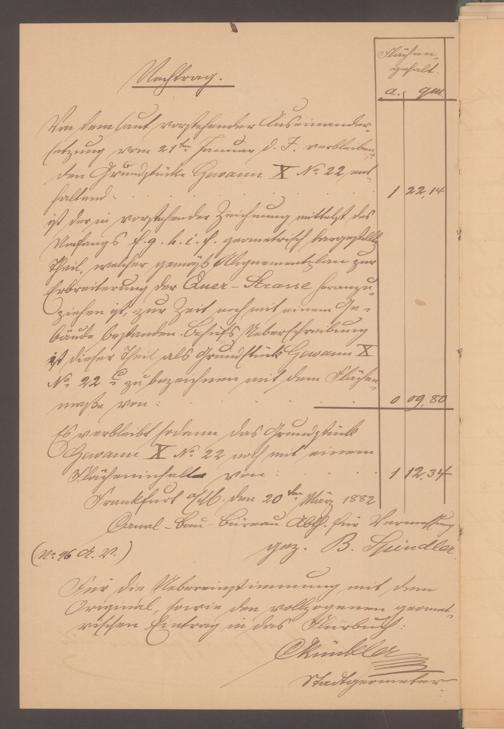 Flächen-
gehalt.
Nachtrag.
a. qm
Von dem laut vorstehender Auseinander-
setzung vom 21ten Januar d. J. verbleiben-
den Grundstücke Gewann X No 22 ent-
haltend . . . 1 22,14
ist der in vorstehender Zeichnung mittelst des
Umfangs f. g. h. i. f. geometrisch dargestellte
Theil, welcher gemäß Alignementsplan zur
Erbreiterung der Quer-Strasse heranzu-
ziehen ist, zur Zeit noch mit einem Ge-
bäude bestanden. Behufs Ueberschreibung
ist dieser Theil als Grundstück Gewann X
No. 22 c zu bezeichnen mit dem Flächen-
maße von: . . . 0 09,80
Es verbleibt sodann das Grundstück
Gewann X No 22 noch mit einem
Flächeninhalte von: . . . 1 12,34
Frankfurt a/M, den 20ten März 1882
Canal-Bau-Bureau Abth. für Vermessung
(No 96 A. V.) gez. B. Spindler
Für die Uebereinstimmung mit dem
Original, sowie den vollzogenen geomet-
rischen Eintrag in das Flurbuch:
Stadtgeometer